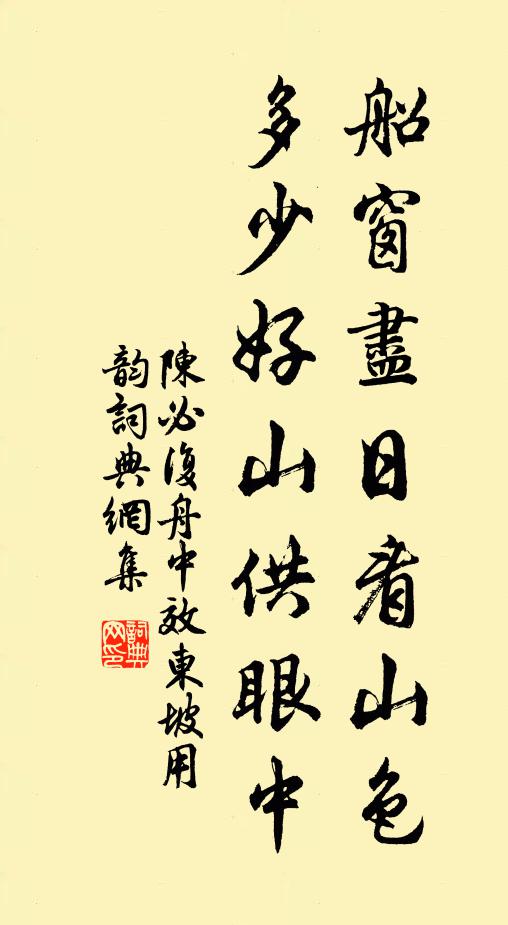 船窗盡日看山色
多少好山供眼中
陳必復舟中效東坡用
韵詞典網集
詞典
网印